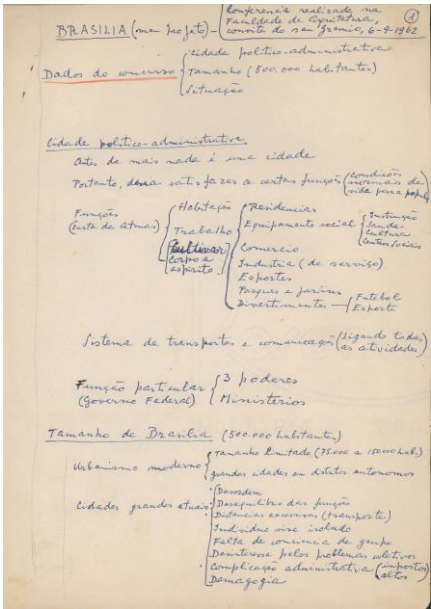 Conferencia realizada na
Faculdade de Arquitetura,
convite do seu gremio, 6-9-1962
1
BRASILIA (meu projeto) -
Dados do concurso
Cidade politico-administrativa
Tamanho (500.000 habitantes)
Situação
Cidade politico-administrativa
Antes de mais nada é uma cidade
Portanto, devia satisfazer a certas funções (condições
normais de
vida para popul.
Funções
(carta de Atenas)
Habitação
Trabalho
Cultivar
corpo e
espirito
Residencias
Equipamento social
Instrução
Saude
Cultura
Centros sociais
Comercio
Industria (de serviço)
Esportes
Parques e jardins
Divertimentos
Futebol
Esporte
Sistema de transportes e comunicações (ligando todas
as atividades)
Função particular
(Governo Federal)
3 poderes
Ministerios
Tamanho de Brasilia (500.000 habitantes)
Urbanismo moderno
Tamanho limitado (75.000 a 150.000 hab.)
grandes cidades em distritos autonomos
Cidades grandes atuais
Desordem
Desequilibrio das funções
Distancias excessivas (transporte)
Individuo vive isolado
Falta de conciencia de grupo
Desinteresse pelos problemas coletivos
Complicação administrativa (impostos
altos)
Demagogia